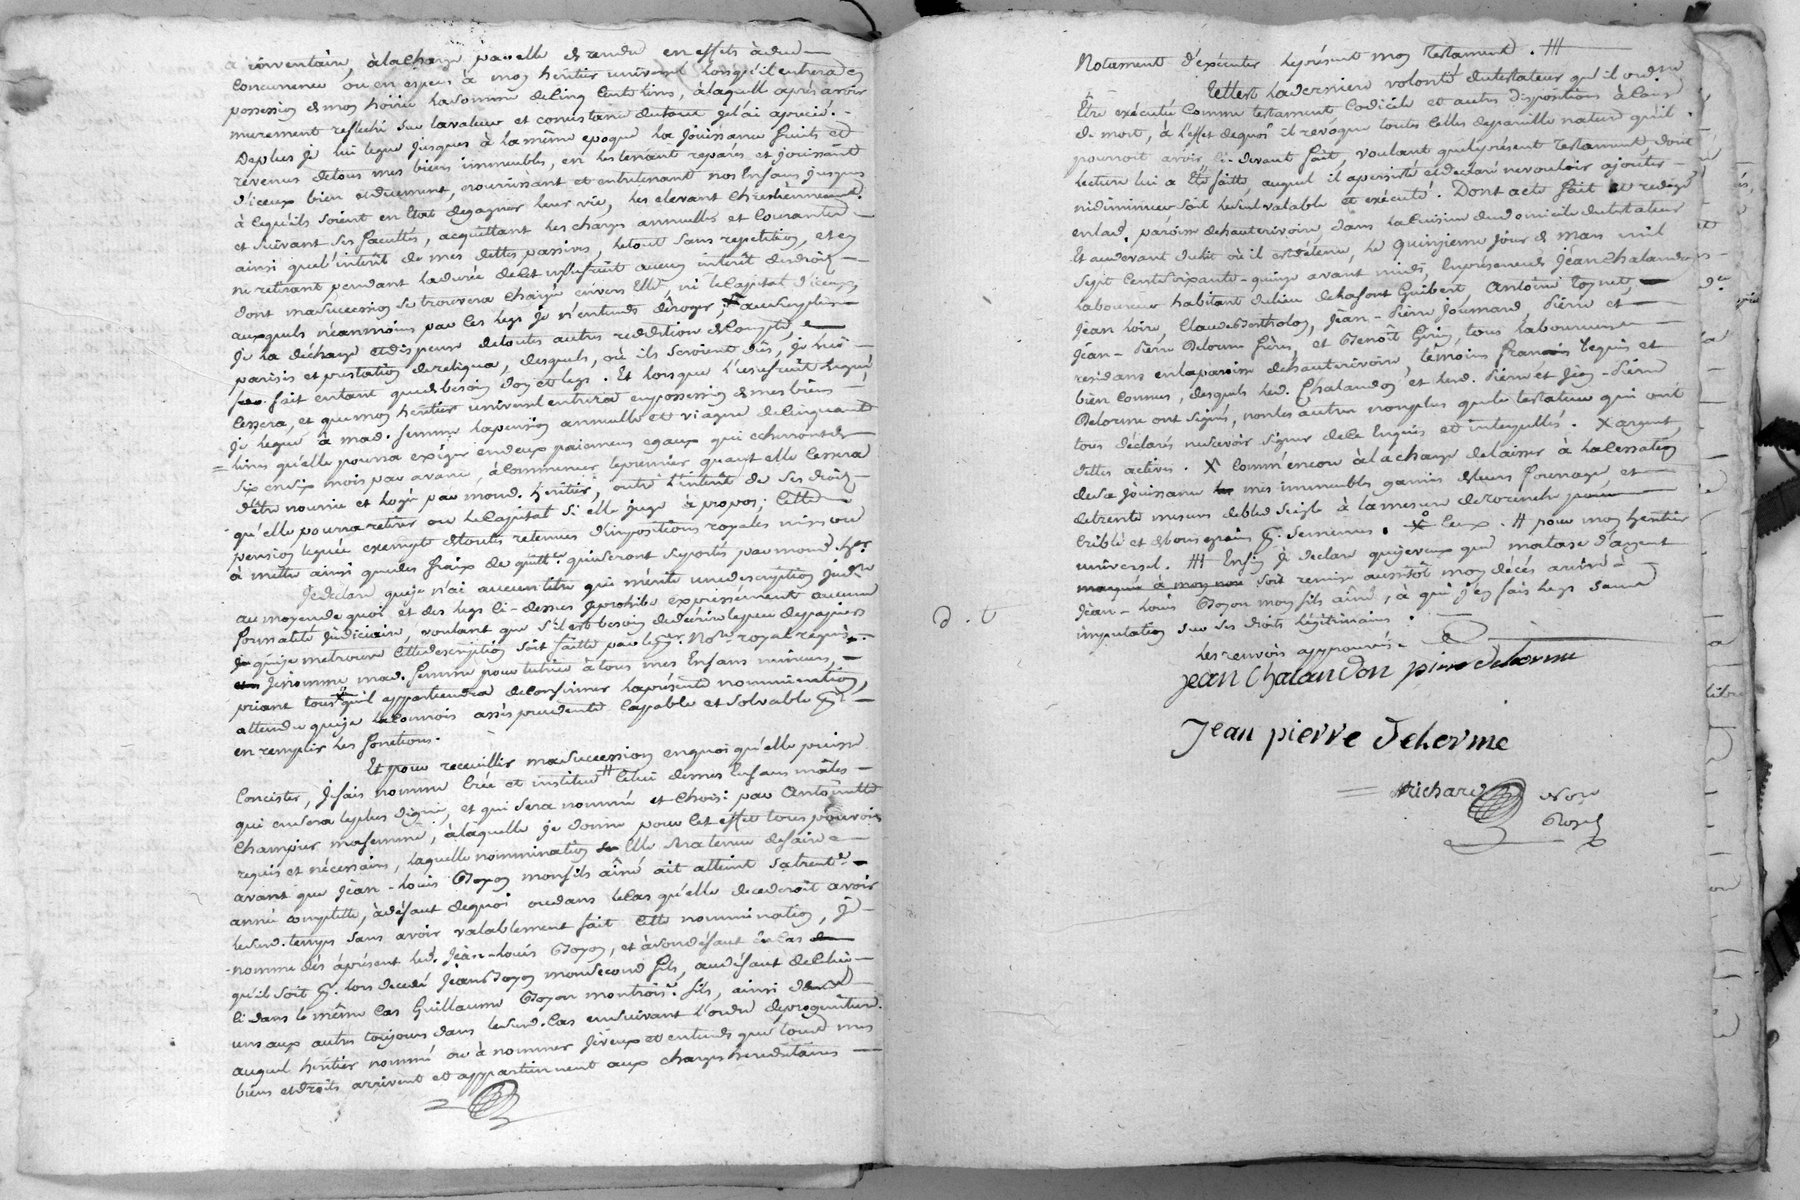 à inventaire, à la charge par elle de rendre en effets à due
concurrence ou en espèce à mon héritier universel lorsqu'il entrera en
possession de mon hoirie la somme de cinq cents livres, à laquelle après avoir
murement refléchi sur la valeur et consistance du tout je l'ai aprécié.
De plus je lui legue jusques à la même epoque la jouissance fruits et
revenus de tous mes biens immeubles, en les tenant reparés et jouissant
d'iceux bien et duement, nourrissant et entretenant nos enfans jusques
à ce qu'ils soient en etat de gagner leur vie, les elevant chrétiennement
et suivant ses facultés, acquittant les charges annuelles et courantes
ainsi que l'intérêt de mes dettes passives, le tout sans repetition, et en
ne retirant pendant la durée de cet usufruit aucun intérêt des droits
dont ma succession se trouvera chargée envers elle, ni le capital d'iceux
auxquels néanmoins par ces legs je n'entends déroger, au surplus
je la décharge et dispense de toutes autres reddition de compte,
et prestation de reliqua, desquels, où ils seroient dûs, je
fait entant que de besoin don et legs. Et lorsque l'usufruit legué
cessera, et que mon héritier universel entrera en possession de mes biens
je legue à mad. femme la pension annuelle et viagere de cinquante
livres qu'elle pourra exiger en deux paiemens egaux qui echerront de
six en six mois par avance, à commencer le premier quant elle cessera
d'être nourrie et logée par mond. héritier, outre l'intérêt de ses droits
qu'elle pourra retirer ou le capital si elle juge à propos; cette
pension leguée exempte de toutes retenues d'impositions royales mises ou
à mettre ainsi que des fraix de quitt.ce qui seront suportés par mond. her.
Je declare que je n'ai aucun titre qui mérite une description jud.re
au moyen de quoi et des legs ci-dessus je prohibe expressément aucune
formalité judiciaire, voulant que s'il est besoin de décrire le peu de papiers
que je me trouve cette description soit faitte par le no.re royal requis.
Je nomme mad. femme pour tutrice à tous mes enfans mineurs,
priant tous qu'il appartiendra de confirmer la présente nommination,
attendu que je la connois assès prudente cappable et solvable p.
en remplir les fonctions.
Et pour recueillir ma succession en quoi qu'elle puisse
concister, je fais nomme crée et institue # celui de mes enfans mâles
qui en sera le plus digne, et qui sera nommé et choisi par Antoinette
Champier ma femme, à laquelle je donne pour cet effet tous pouvoirs
requis et nécessaires, laquelle nommination elle sera tenue de faire
avant que Jean-Louis Goyon mon fils aîné ait atteint sa trente.e
année complette, à défaut de quoi ou dans le cas qu'elle decederoit avoir
led. temps sans avoir valablement fait cette nommination, je
nomme dès àprésent led. Jean-Louis Goyon, et à son défaut en cas
qu'il soit p. lors decedé Jean Goyon mon second fils, au défaut de celui
ci dans le même cas Guillaume Goyon mon trois.e fils, ainsi des
uns aux autres toujours dans led. cas en suivant l'ordre de progeniture
auquel héritier nommé ou à nommer je veux et entends que tous mes
biens et droits arrivent et appartiennent aux charges hereditaires
Notamment d'exécuter le présent mon testament. #
Tel est la derniere volonté du testateur qu'il ordonne
être exécutée comme testament codicile et autres dispositions à cause
de mort, à l'effet de quoi il revoque toutes celles de pareille nature qu'il
pourroit avoir ci-devant fait, voulant que le présent testament dont
lecture lui a été faitte, auquel il a persisté et declaré ne vouloir ajouter
ni diminuer soit le seul valable et exécuté. Dont acte fait et redigé
en lad. paroisse de hauterivoire dans la cuisine du domicile du testateur
et au devant du lit où il est détenu, le quinzieme jour de mars mil
sept cent soixante-quinze avant midi, en présence de Jean Chalandon
laboureur habitant du lieu de lafont Guibert Antoine Coynet
Jean Loire, Claude Bertholon, Jean-Pierre Joumard, Pierre et
Jean-Pierre Delorme frères, et Benoît Giry, tous laboureurs
residans en la paroisse de hauterivoire, témoins francois requis et
bien connus, desquels led. Chalandon et lesd. Pierre et Jean-Pierre
Delorme ont signé, non les autres non plus que le testateur qui ont
tous déclarés ne savoir signer de ce enquis et interpellés. X argent,
dettes actives. X comm'encore à la charge de laisser à la cessation
de sa jouissance mes immeubles garnis de leurs fourrage et
de trente mesures de bled seigle à la mesure de
criblé et de bons grains p. semences. X ceux. # pour mon heritier
universel. ## Enfin je declare que je veux que ma tasse d'argent
marquée à mon nom soit remise aussitôt mon decès arrivé à
Jean-Louis Goyon mon fils aîné, à qui j'en fais legs sans
imputation sur ses droits légitimaires.
les renvois approuvés.
jean Chalandon pierre delorme
Jean pierre delorme
Richard no.re
Royal